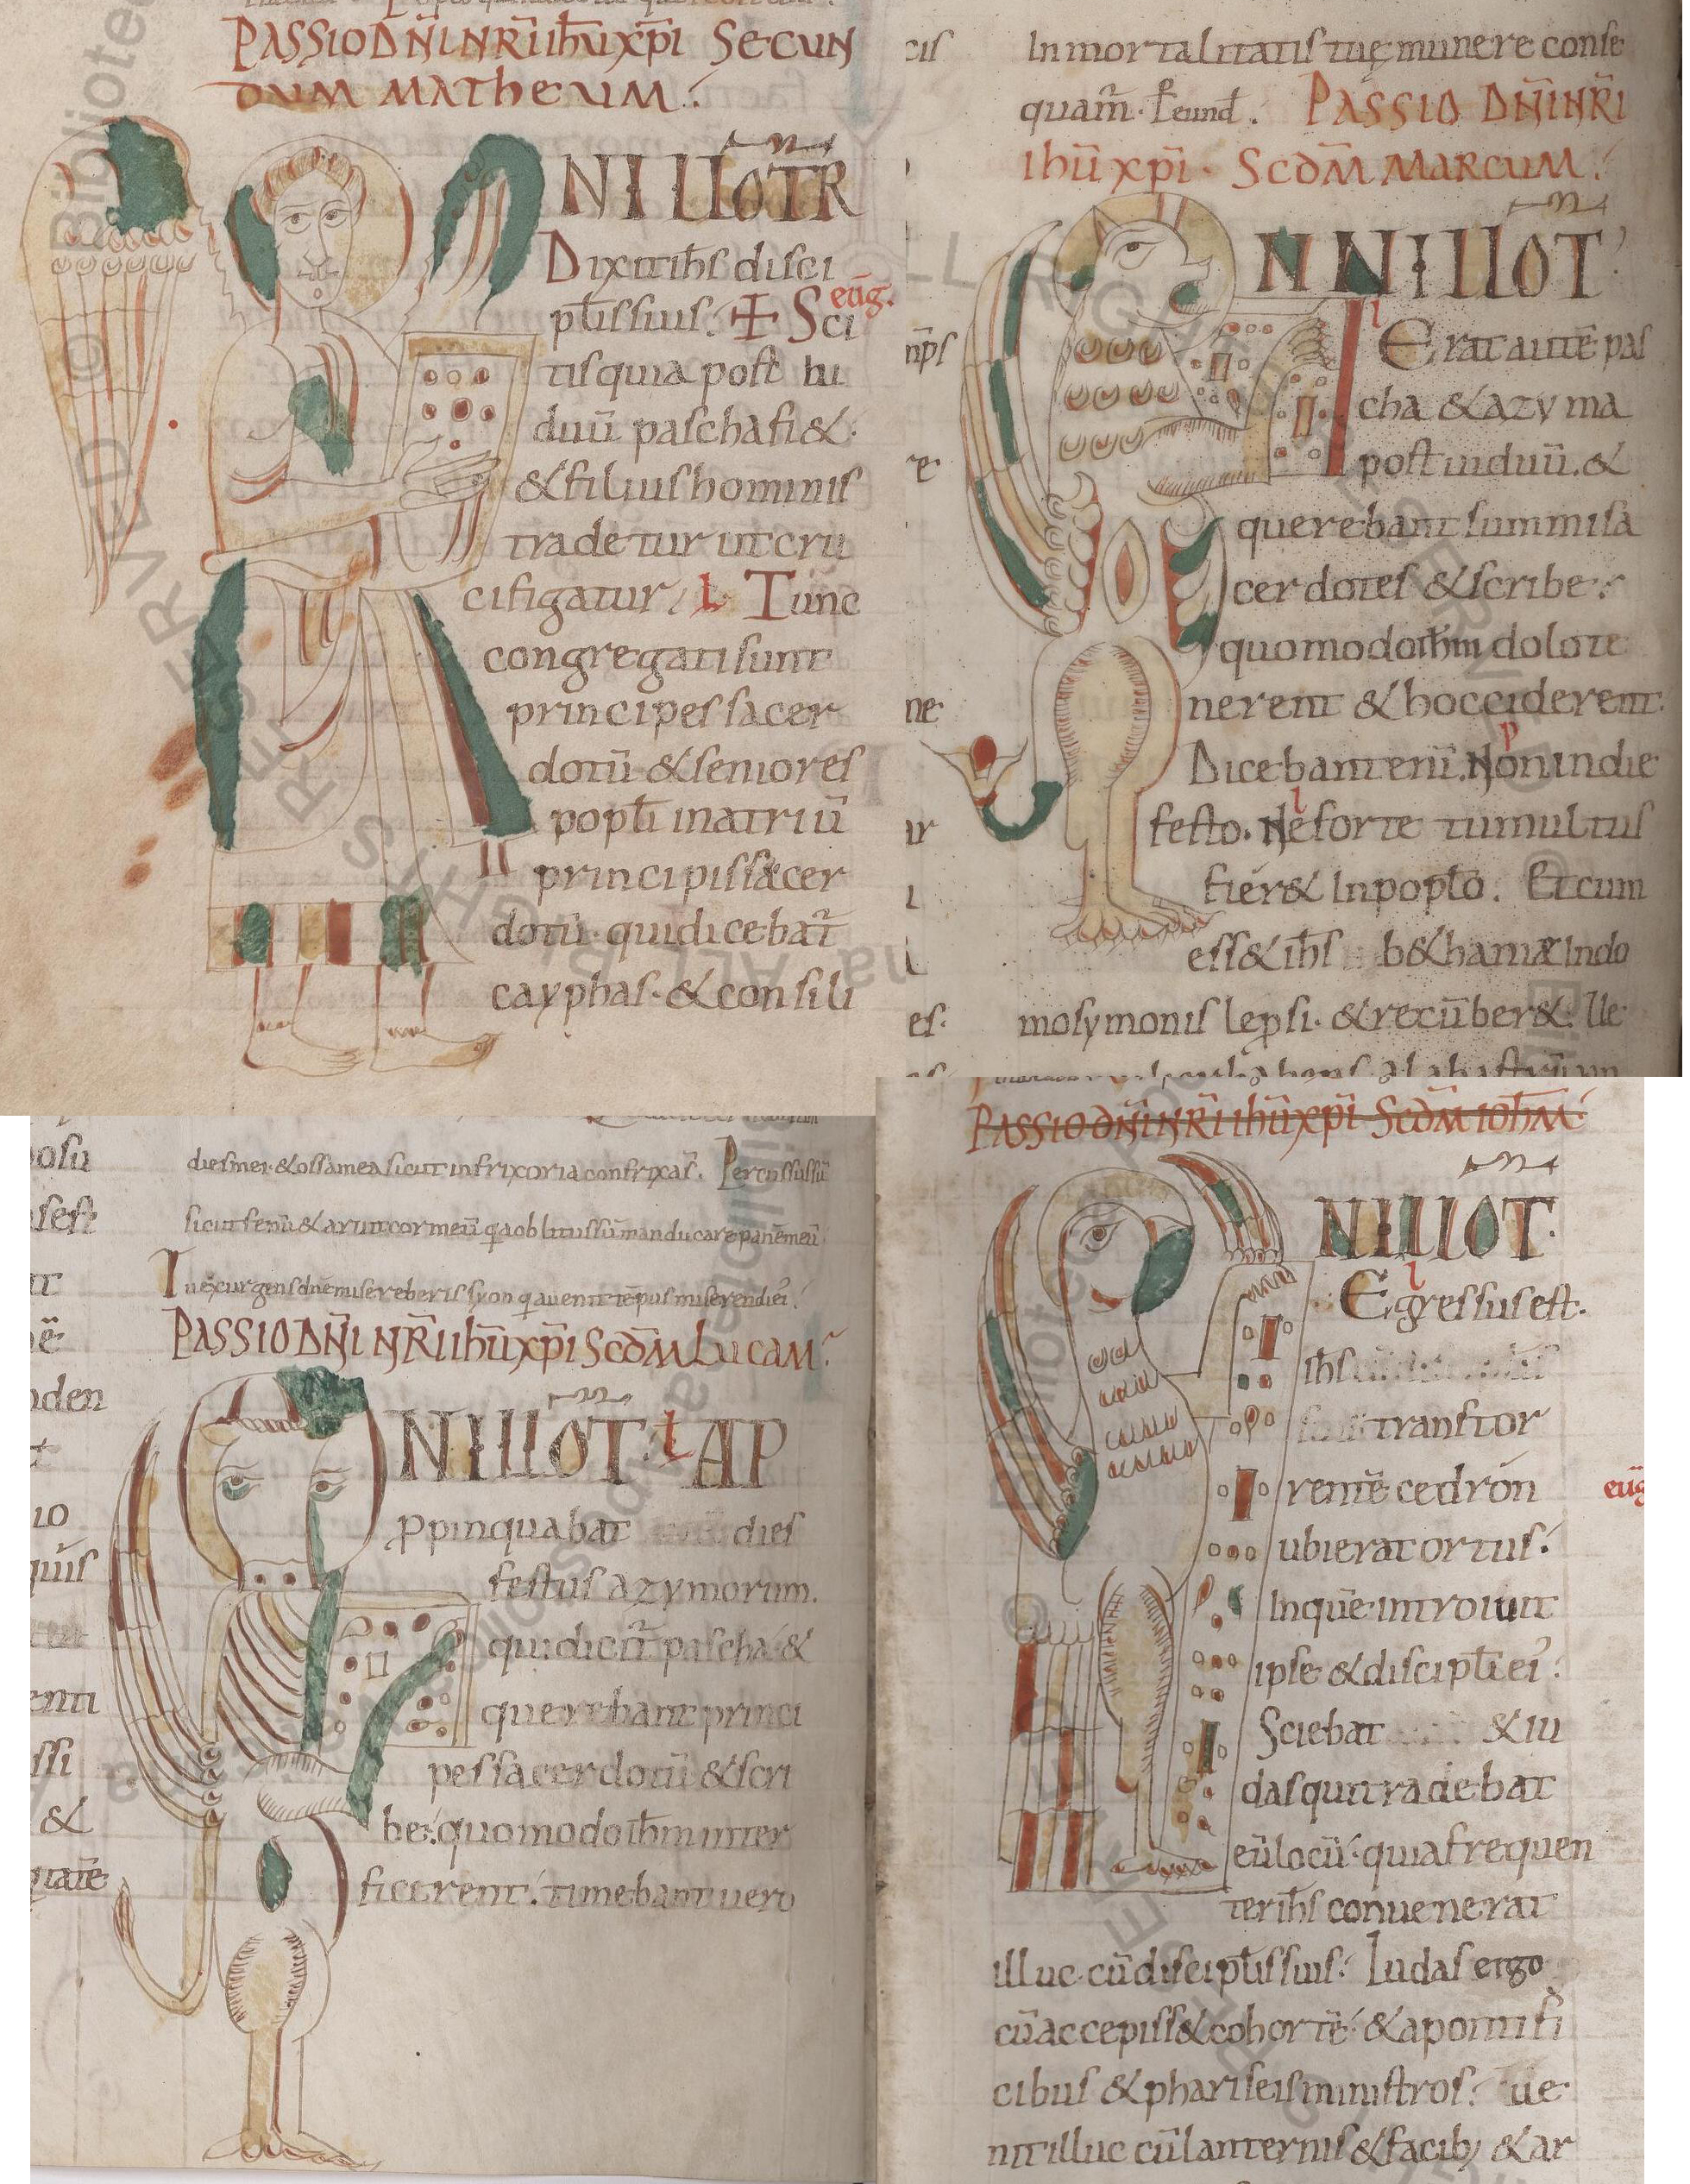 PASSIO DN̄I NR̄I IHŪ XP̄I SECUN
DUM MATHEUM.
NILLŌTR̄
Dixit ihs disci
płis suis. + Sci
eūg.
tis quia post bi
duū pascha fi&.
& filius hominis
tradetur ut cru
cifigatur. l Tunc
congregati sunt
principes sacer
dotū & seniores
popłi in atriū
principis sacer
dotū. qui dicebat̄
cayphas. & consili
In mortalitatis tuę munere conse
quam̄. PASSIO DN̄I NR̄I
IHŪ XP̄I. SCDM̄ MARCUM.
N NILLOT
l
Erat autē pas
cha & azyma
post biduū. &
querebant summi sa
cerdotes & scribe.
quomodo ihm dolo te
nerent & hocciderent.
Dicebant enī. Non in die
p
festo. Ne forte tumultus
l
fier& In popło. Et cum
ess& ihs b&haniæ In do
mo symonis lep̄si. & recūber&.
dies mei. & ossa mea sicut in frixoria confrixa s̄. Percussus sū
sicut fenū & aruit cor meū q̄a oblitus sū manducare panē meū
Tu exurgens dn̄e misereberis syon q̄a uenit tēpus miserendi ei.
PASSIO DN̄I NR̄I IHŪ XP̄I SCDM̄ LUCAM.
NILLŌT. l AP
ppinquabat dies
festus azymorum.
qui dicit̄ pascha. &
querebant princi
pes sacerdotū & scri
be. quomodo ihm inter
ficerent. timebant uero
PASSIO DN̄I NR̄I IHŪ XP̄I SCDM̄ IOHM̄
NILLŌT.
l
Egressus est.
ihs
trans tor
rentē cedron
eūg
ubi erat ortus.
In quē introiuit
ipse & discipłi ei.
Sciebat & iu
das qui tradebat
eū locū. quia frequen
ter ihs conuenerat
illuc cū discipłis suis. Iudas ergo
cū accepiss& cohortē. & a pontifi
cibus & phariseis ministros. ue
nit illuc cū lanternis & facib; & ar